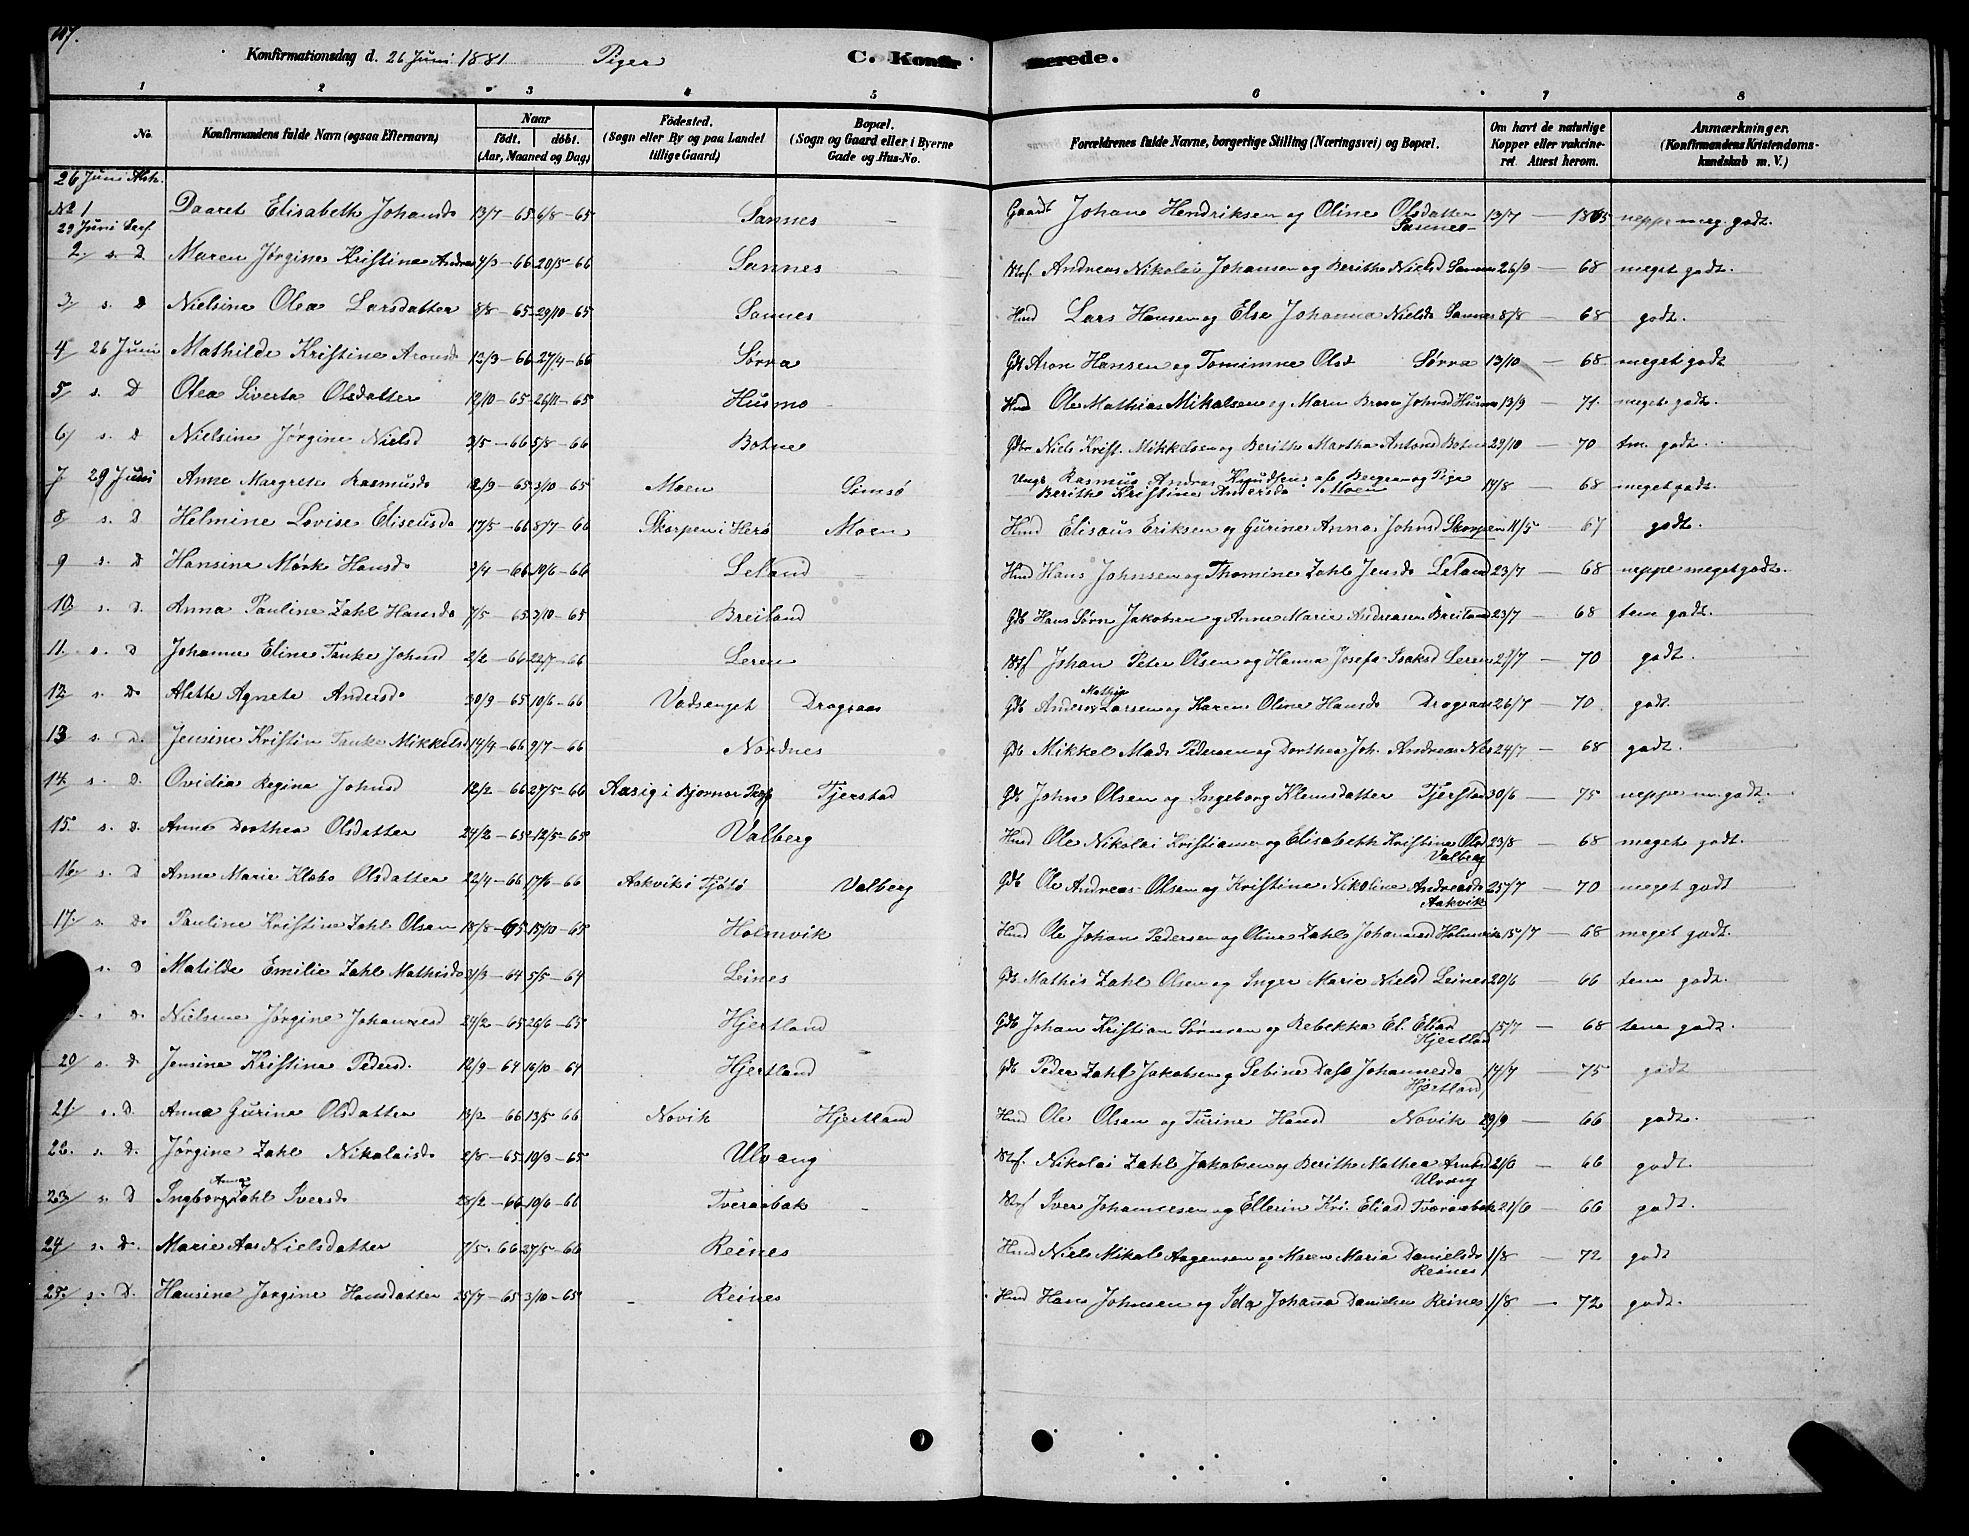 107.
Konfirmationsdag d. 26 Juni 1881 Piger C. Konfirmerede.
1 2 3 4 5 6 7 8
No. Konfirmandens fulde Navn (ogsaa Efternavn) Naar födt. döbt. (Aar, Maaned og Dag) Födested. (Sogn eller By og paa Landet tillige Gaard) Bopæl. (Sogn og Gaard eller i Byerne Gade og Hus-No. Forældrenes fulde Navne, borgerlige Stilling (Næringsvei) og Bopæl. Om havt de naturlige Kopper eller vakcineret. Attest herom. Anmærkninger. (Konfirmandens Kristendomskundskab m. V.)
26 Juni
No 1 Daaret Elisabeth Johansd 13/7 - 65 6/8 - 65 Sannes - Gaardb Johan Hendriksen og Oline Olsdatter Sannes 13/7 - 1865 neppe meg. godt.
29 Juni
2/ s. D Maren Jørgine Kristine Andreas 4/3 - 66 20/5 - 66 Sannes - Andreas Nikolai Johansen og Berithe Nielsd Sannes 26/9 - 68 meget godt.
3/ s. D Nielsine Olea Larsdatter 8/8 - 65 29/10 - 65 Sannes Hmd Lars Hansen og Else Johanna Nielsd Sannes 8/8 - 68 godt.
4 26 Juni Mathilde Kristine Aronsd 12/3 - 66 27/4 - 66 Sørra Gdb Aron Hansen og Tomimne Olsd Sørra 13/10 - 68 meget godt
5/ s. D Olea Siverta Olsdatter 12/10 - 65 26/11 - 65 Husmo Hmd Ole Mathias Mikalsen og Maren Johnsd Husmo 13/9 - 71. meget godt.
6/ s. D Nielsine Jørgine Nielsd 3/5 - 66 5/8 - 66 Botne Gdbr Niels Krist. Mikkelsen og Berithe Martha Antonsd Botne 29/10 - 70 tm. godt.
7 29 Juni Anne Margrete Rasmusd 12/9 - 65 3/10 - 65 Moen Simsø Ungk Rasmus Andreas Knudsen af Bergen og Pige Berithe Kristine Andersd Moen 14/8 - 68 meget godt.
8/ s. D Helmine Lovise Eliseusd 17/5 - 66 8/7 - 66 Skorpen i Herø Moen Hmd Elisæus Eriksen og Gurine Anna Johnsd Skorpen 11/5 - 67 godt.
9 s. D Hansine Mørk Hansd 3/4 - 66 10/6 - 66 Leland - Hmd Hans Johnsen og Thomine Zahl Jensd Leland 23/7 - 68 neppe meget godt.
10. s. D. Anna Pauline Zahl Hansd 7/5 65 3/10 - 65 Breiland Gdb Hans Sørn Jakobsen og Anne Marie Andreasen Breiland 23/7 - 68 tem godt.
11. s. D Johanne Eline Tanke Johnsd 2/2 - 66 22/7 - 66 Leren Johan Peter Olsen og Hanna Josefa Isaksd Leren 27/7 - 70 godt.
12. s. D. Alette Agnete Andersd 30/9 - 65 10/6 - 66 Vadsenget Dragsaas Gdb Anders Mathis Larsen og Karen Oline Hansd Dragsaas 26/7 - 70. godt.
13 s. D. Jensine Kristine Tanke Mikkelsd 14/4 - 66 9/7 - 66 Nordnes Gdb Mikkel Mads Pedersen og Dorthea Joh. Andreas Nes 24/7 - 68 godt.
14. s. D. Ovidia Regina Johnsd 12/2 66 27/5 - 66 Aasig i Bjørnør Tjerstad Gdb John Olsen og Ingeborg Klemsdatter Tjerstad 30/6 - 75 neppe m. godt.
15. s. D. Anne Dorthea Olsdatter 24/2 - 65 12/5 - 65 Valberg Hmd Ole Nikolai Kristiansen og Elisabeth Kristine Olsd Valberg 23/8 - 68 meget godt.
16. s. D Anne Marie Klebo Olsdatter 22/4 - 66 17/6 - 66 Aakvik i Tjøtø Valberg Gdb Ole Andreas Olsen og Kristine Nikoline Andreasd Aakvik 25/7 - 70 meget godt
17. s. D. Pauline Kristine Zahl Olsen 18/8 - 65 15/10 - 65 Holmvik Hmd Ole Johan Pedersen og Oline Zahl Johannesd Holmvik 15/7 - 68 meget godt.
s. D Matilde Emilie Zahl Mathisd 3/3 - 64 5/5 - 64 Leines Gdb Mathis Zahl Olsen og Inger Marie Nielsd Leines 20/6 - 66 tem godt.
s. D. Nielsine Jørgine Johannesd 24/2 - 65 26/6 - 65 Hjertland Gdb Johan Kristian Sørensen og Rebekka El. Eliasd Hjertland 15/7 - 68 tem godt.
20 s. D. Jensine Kristine Pedersd. 12/9 - 64 16/10 - 64 Hjertland Gdb Peder Zahl Jakobsen og Sebine Dass Johannesd Hjertland 14/7 - 75 godt
21 s. D. Anna Gurine Olsdatter 13/2 - 66 13/5 - 66 Novik Hjertland Hmd Ole Olsen og Turine Hansd Novik 29/9 - 66 godt.
22. s. D. Jørgine Zahl Nikolaisd 2/8 - 65 10/9 - 65 Ulvang Nikolai Zahl Jakobsen og Berithe Mathea Ulvang 21/6 - 66 godt.
23/ s. D Ingborg Anna Zahl Iversd 25/2 - 66 10/6 - 66 Tveraabak - Iver Johannesen og Ellerine Kri. Eliasd Tveraabak 21/6 - 66 godt.
24/ s. D. Marie Aas Nielsdatter 7/5 - 66 27/5 - 66 Reines Hmd Niels Mikal Aagensen og Maren Maria Danielsd Reines 1/8 - 72 godt
25. s. D. Hansine Jørgine Hansdatter 25/7 - 65 3/10 - 65 - Reines Hmd Hans Johnsen og Ida Johanna Danielsen Reines 1/8 - 72 godt.